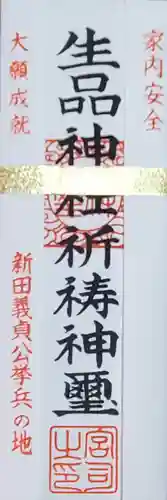 家内安全
生品神社祈祷神璽
大願成就
新田義貞公挙兵の地
宮司之印